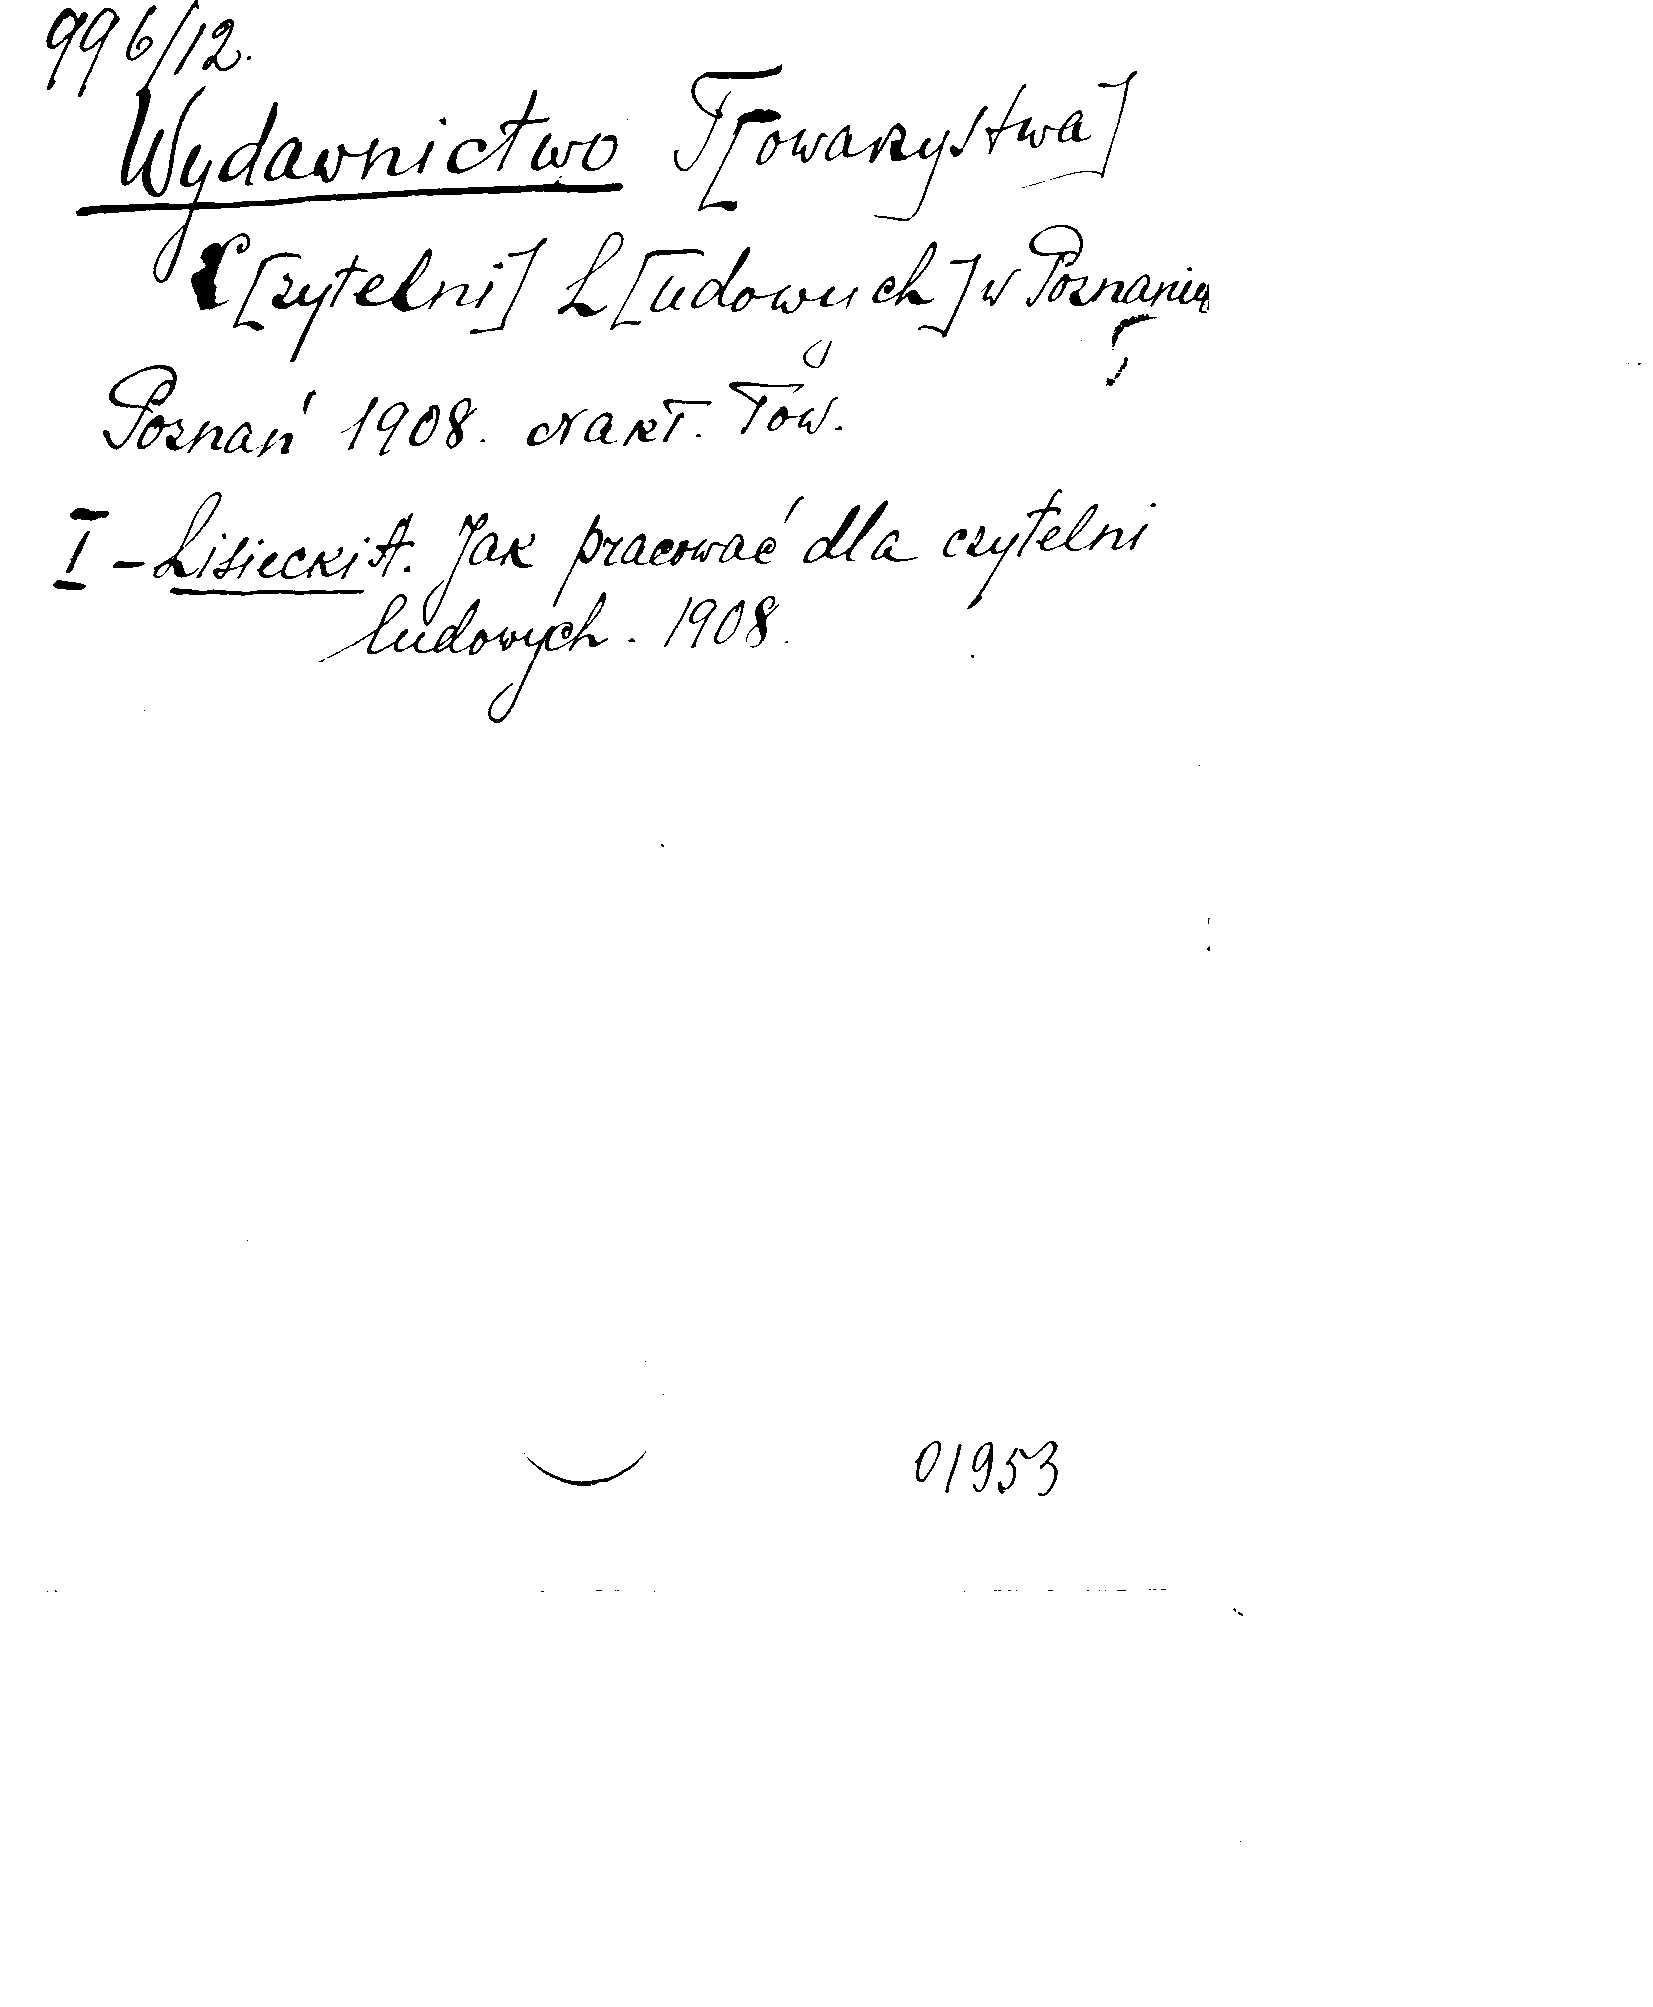 996/12.
Wydawnictwo T[owarzystwa]
C[zytelni] L[udowych] w Poznaniu
Poznań 1908. Nakł. Tow.
I - Lisiecki A. Jak pracować dla czytelni
ludowych. 1908.
01953